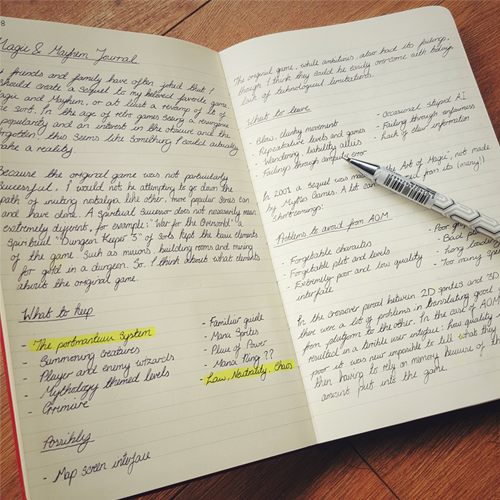 8
Magic & Mayhem Journal
friends and family have often joked that I
should create a sequel to my beloved favorite game,
Magic and Mayhem, or at least a revamp of it of
sort. In the age of retro games seeing a resurging
popularity and an interest in the obscure and the
forgotten this seems like something I could actually
make a reality.
Because the original game was not particularly
successful, I would not be attempting to go down the
path of inviting nostalgia like other, more popular series can
and have done. A spiritual successor does not necessarily mean
extremely different, for example: "War for the Overworld" a
spiritual "Dungeon Keeper 3" of sorts kept the basic elements
of the game such as minions building rooms and mining
for gold in a dungeon. So I think about what
about the original game.
What to keep
- The portmanteau System
- Summoning creatures
- Player and enemy wizards
- Mythology themed levels
- Grimoire
- Familiar guide
- Mana Sprites
- Place of Power
- Mana thing ??
Law, Neutrality, Chaos
Possibly
- Map screen interface
The original game, while ambitious, also had its failings,
though I think they could be easily overcome with
lack of technological limitations.
What to leave
- Slow, clunky movement
- Repetative levels and games
- Wandering liability allies
- Failings through error
- Occasional stupid A.I
- Failing through unfairness
- Lack of clear information
In 2001 a sequel was made the Art of Magic", not made
by Mythos Games. A lot can from its (many!!)
shortcomings.
Problems to avoid from AOM
- Forgettable characters
- Forgettable plot and levels
- Extremely poor and low quality
interface
- Poor
- Bad
- Long
- Too many
In the crossover period between 2D sprites and 3D
there were a lot of problems in translating good
from platform to the other. In the case of AOM
resulted in a terrible user interface: how quality
poor it was now impossible to tell what they
then having to rely on memory, because of the
amount put into the game.